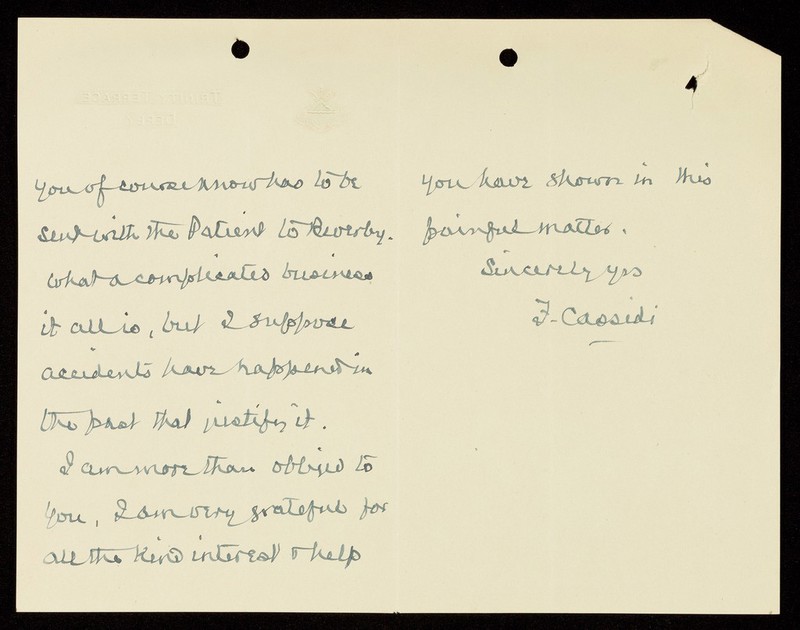 you of course know has to be
sent with the Patient to Reverby.
what a complicated business
it all is, but I suppose
accidents have happened in
the past that justify it.
I am more than obliged to
you, I am very grateful for
all the kind interest & help
you have shown in this
painful matter.
Sincerely yrs
F. Cassidi